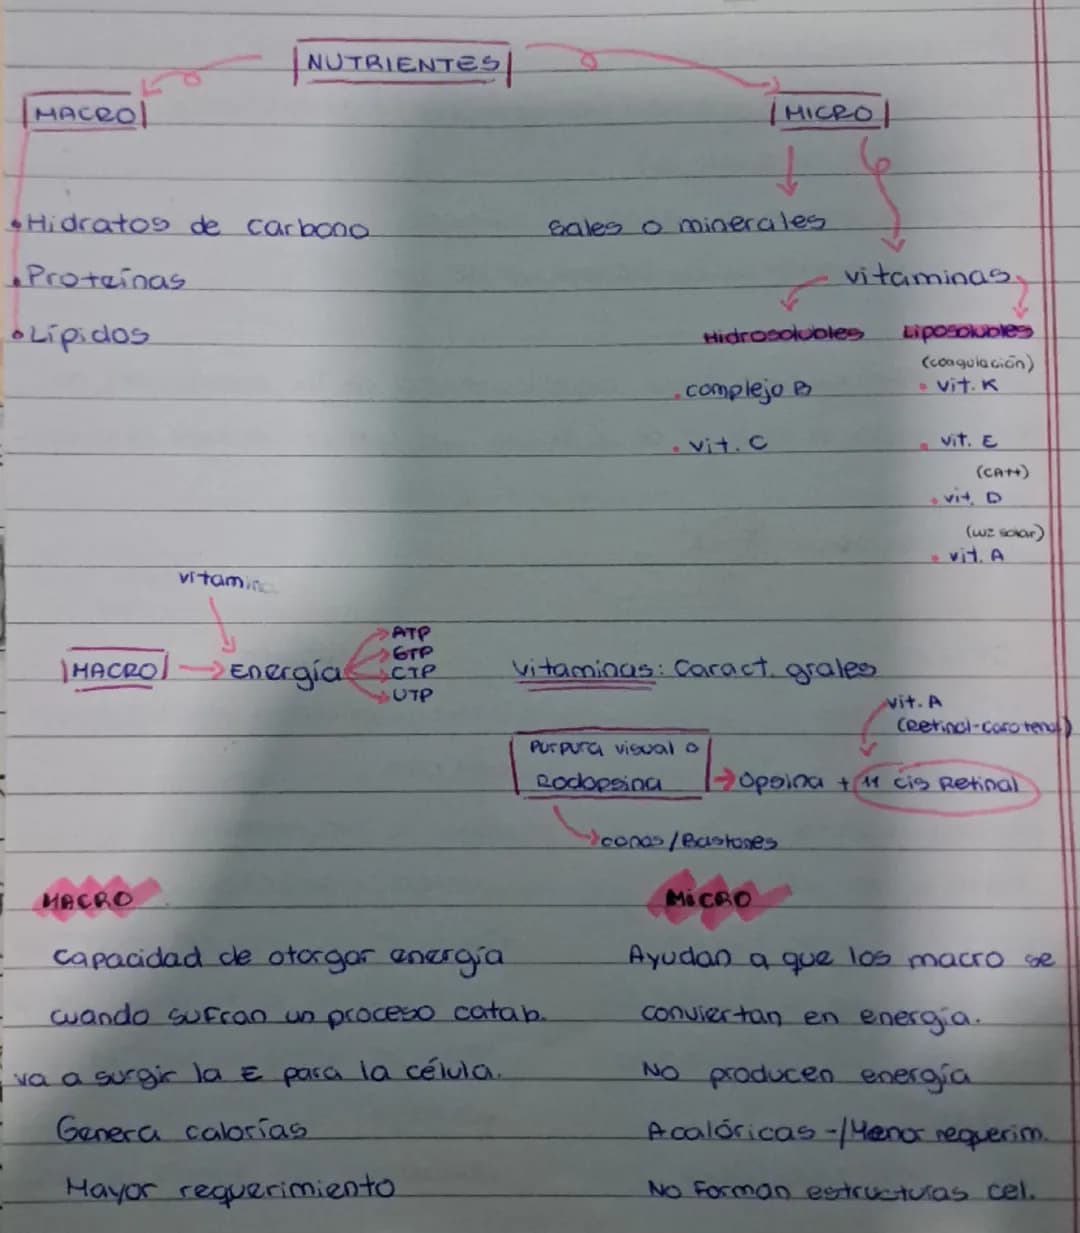 NUTRIENTES
MACRO
MICRO
• Hidratos de carbono
• Proteínas
• Lípidos
Sales o minerales
vitaminas
Hidrosolubles
• complejo B
• vit. C
Liposolubles
(coagulación)
• vit. K
• vit. E
(CA++)
• vit. D
(luz solar)
• vit. A
vitamina
MACRO → Energía
ATP
GTP
CTP
UTP
Vitaminas: Caract. grales
vit. A
(Retinol-caroteno)
Purpura visual o
Rodopsina → Opsina + 11 cis Retinal
conos/Bastones
MACRO
Capacidad de otorgar energía
cuando sufran un proceso catab.
va a surgir la E para la célula.
Genera calorías
Mayor requerimiento
MiCRO
Ayudan a que los macro se
conviertan en energía.
No producen energía
Acalóricas -/Menor requerim.
No Forman estructuras cel.